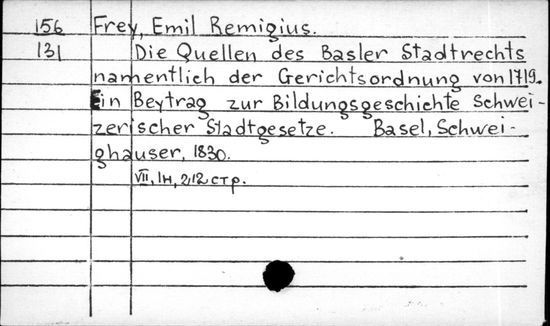 156 Frey, Emil Remigius.
131 Die Quellen des Basler Stadtrechts
namentlich der Gerichtsordnung von 1719.
Ein Beytrag zur Bildungsgeschichte Schwei-
zerischer Stadtgesetze. Basel, Schwei-
ghauser, 1830.
VII, 1н, 212 стр.